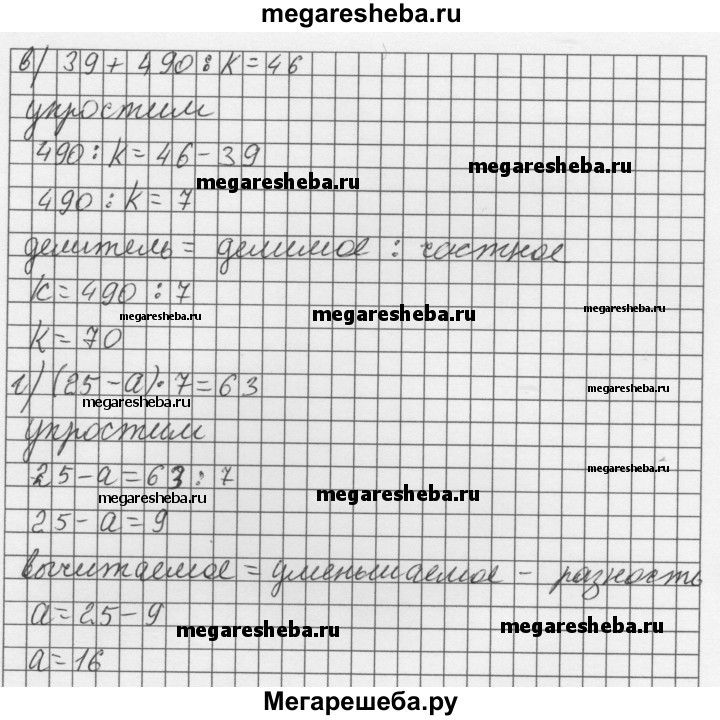 megaresheba.ru
в) 39 + 490 : k = 46
упростим
490 : k = 46 - 39
megaresheba.ru
megaresheba.ru
490 : k = 7
делитель = делимое : частное
k = 490 : 7
megaresheba.ru
megaresheba.ru
megaresheba.ru
k = 70
г) (25 - a) · 7 = 63
megaresheba.ru
megaresheba.ru
упростим
25 - a = 63 : 7
megaresheba.ru
megaresheba.ru
megaresheba.ru
25 - a = 9
вычитаемое = уменьшаемое - разность
a = 25 - 9
megaresheba.ru
megaresheba.ru
a = 16
Мегарешеба.ру